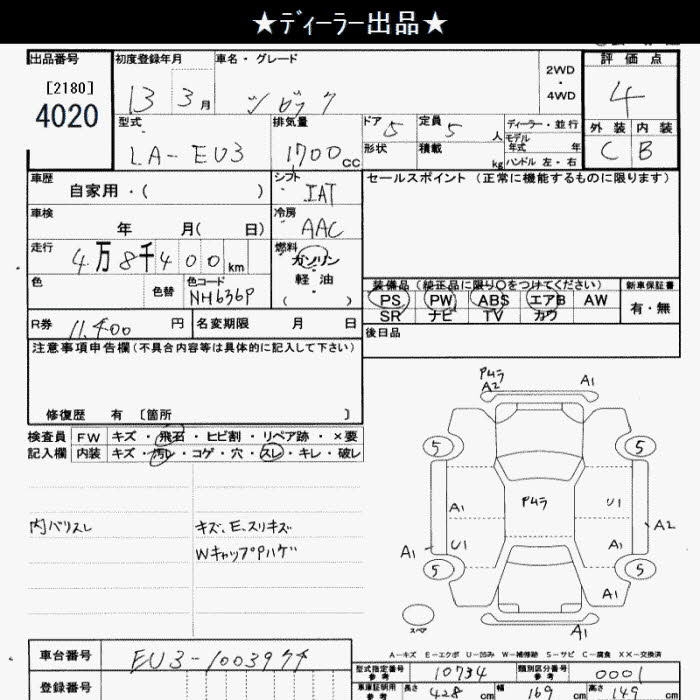 ★ディーラー出品★
出品番号 初度登録年月 車名・グレード 2WD・4WD 評価点
[2180]
4020
13 3月 シビック 4
型式 排気量 ドア 5 定員 5人 ディーラー・並行 外装 内装
モデル年式 年
LA-EU3 1700cc 形状 積載 kg ハンドル 左・右 C B
車歴 シフト セールスポイント (正常に機能するものに限ります)
自家用・( ) IAT
車検 冷房
年 月( 日) AAC
走行 燃料
4万8千400km ガソリン
軽油
( )
色 色替 色コード
NH636P
装備品 (純正品に限り○をつけてください) 新車保証書
PS PW ABS エアB AW 有・無
SR ナビ TV カワ
R券 11,400円 名変期限 月 日 後日品
注意事項申告欄 (不具合内容等は具体的に記入して下さい)
修復歴 有 [箇所 ]
検査員 FW キズ・飛石・ヒビ割・リペア跡・×要
記入欄 内装 キズ・汚レ・コゲ・穴・スレ・キレ・破レ
内バリスレ キズ、E、スリキズ
WキャップPハゲ
Pムラ
A2 A1
5 5
Pムラ
A1 U1
A2
U1 A1
A1
5 5
A1
スペア
A1
A-キズ E-エクボ U-凹み W-補修跡 S-サビ C-腐食 XX-交換済
車台番号
型式指定番号 参考 10734 類別区分番号 参考 0001
登録番号
車庫証明用 参考 長さ 428cm 幅 169cm 高さ 149cm